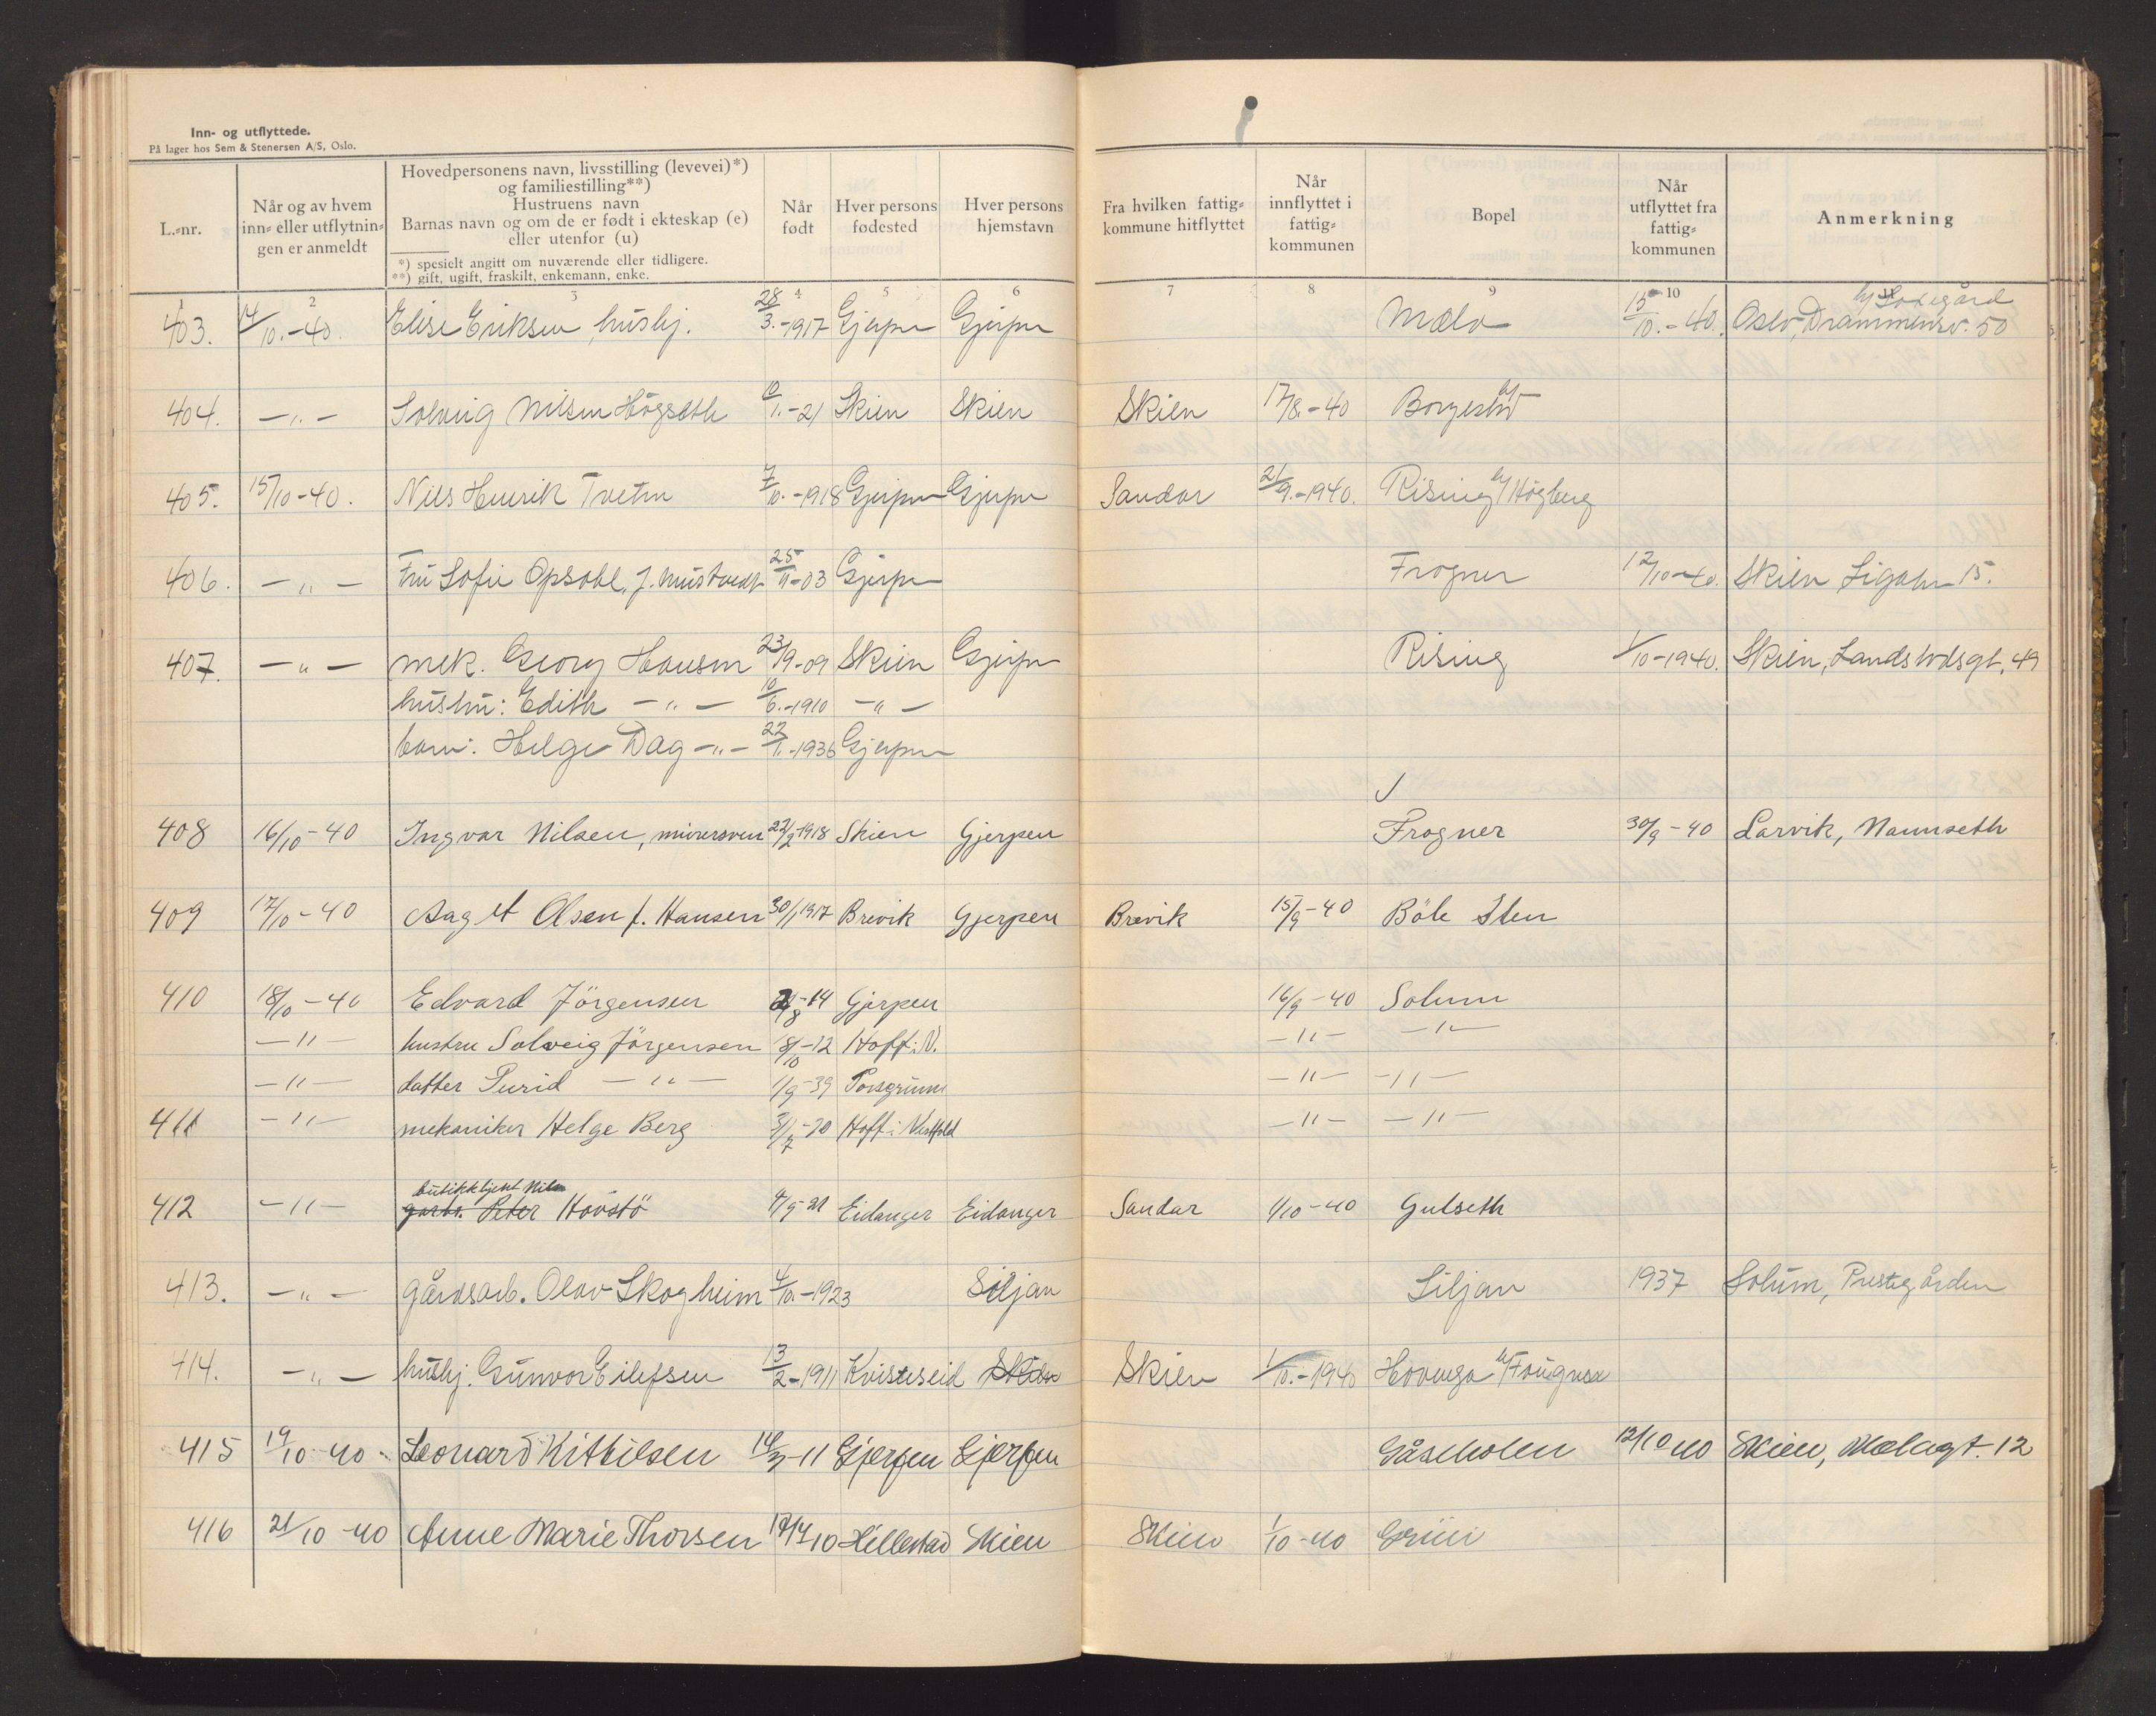 Inn- og utflyttede.
På lager hos Sem & Stenersen A/S, Oslo.
L.-nr.
Når og av hvem inn- eller utflytningen er anmeldt
Hovedpersonens navn, livsstilling (levevei)*) og familiestilling**)
Hustruens navn
Barnas navn og om de er født i ekteskap (e) eller utenfor (u)
*) spesielt angitt om nuværende eller tidligere.
**) gift, ugift, fraskilt, enkemann, enke.
Når født
Hver persons fødested
Hver persons hjemstavn
Fra hvilken fattig-kommune hitflyttet
Når innflyttet i fattig-kommunen
Bopel
Når utflyttet fra fattig-kommunen
Anmerkning
1 2 3 4 5 6 7 8 9 10 11
403. 14/10.-40. Elise Eriksen, hushj. 28/3.-1917 Gjerpen Gjerpen Mæla 15/10.-40. Oslo, Drammensv. 50
404. -"- Solveig Nilsen Högseth 10/1.-21 Skien Skien Skien 17/8.-40 Borgestad
405. 15/10-40. Nils Henrik Tveten 7/10.-1918 Gjerpen Gjerpen Sandar 21/9.-1940. Rising h/ Högberg
406. -"- Fru Sofie Opsahl, f. 25/11-03 Gjerpen Frogner 12/10-40. Skien 15.
407. -"- mek. Georg Hansen 23/9-09 Skien Gjerpen Rising 1/10-1940. Skien, Landstadsgt. 49
hustru: Edith -"- 10/6.-1910 -"-
barn: Helge Dag -"- 22/1.-1936 Gjerpen
408 16/10-40 Ingvar Nilsen, murersven 22/2 1918 Skien Gjerpen Frogner 30/9-40 Larvik, Nannseth
409 17/10-40 Aagot Olsen f. Hansen 30/1 1917 Brevik Gjerpen Brevik 15/9-40 Böle Sten
410 18/10-40 Edvard Jörgensen 2/8-14 Gjerpen 16/9-40 Solum
-"- hustru Solveig Jörgensen 18/10-12 Hoff i V. -"- -"-
-"- datter Turid -"- 1/9-39 Porsgrunn -"- -"-
411 -"- mekaniker Helge Berg 3/7-20 Hoff i Vestfold -"- -"-
butikktjent Nils
412 -"- gårdsarb. Peter Hovstö 4/9-21 Eidanger Eidanger Sandar 1/10-40 Gulseth
413. -"- gårdsarb. Olav Skogheim 4/10.-1923 Siljan Siljan 1937 Solum, Prestegården
414. -"- hushj. Gunvor Eilefsen 13/2-1911 Kviteseid Skien Skien 1/10.-1940 Hovenga h/
415 19/10-40. Leonard Kittilsen 14/3-11 Gjerpen Gjerpen Gåseholen 12/10 40 Skien, Mælagt. 12
416 21/10-40 Anne Marie Thorsen 17/4 10 Hillestad Skien Skien 1/10-40 Grini